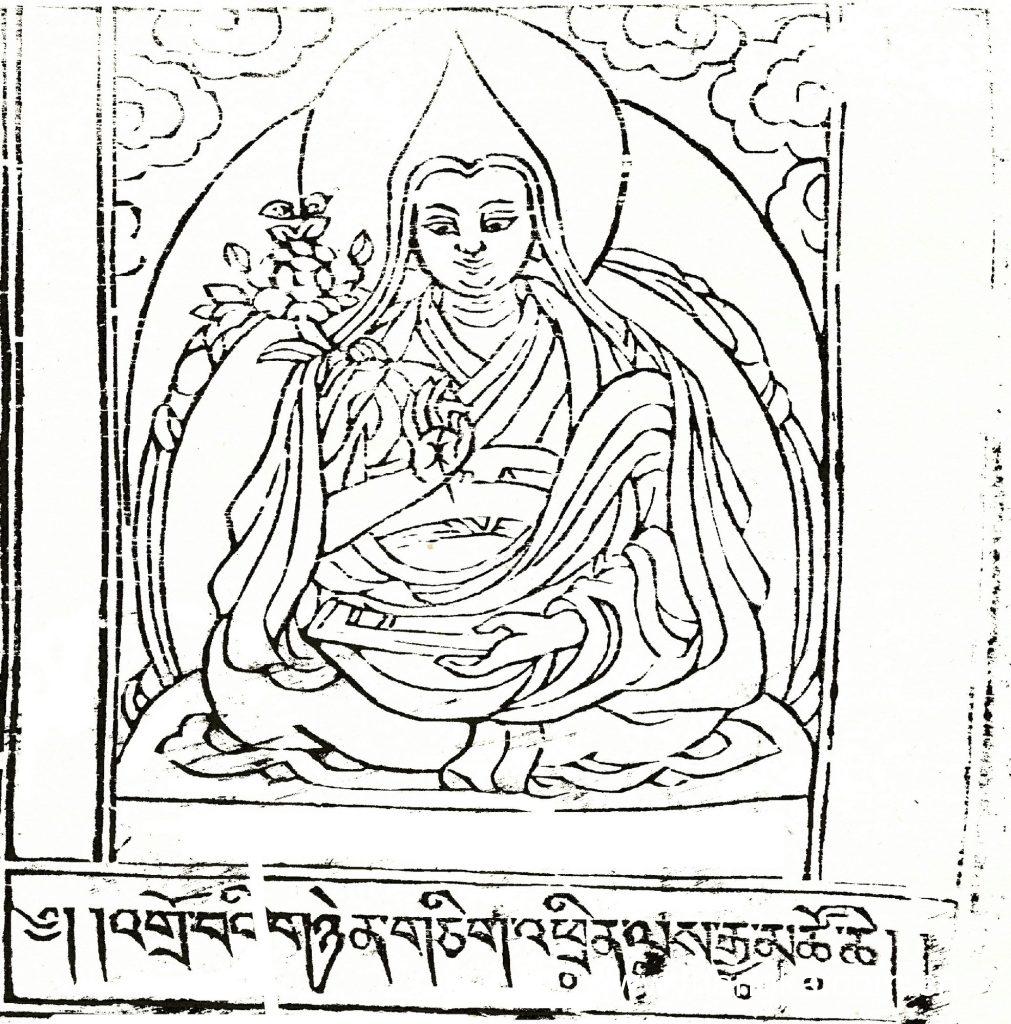 ༄། །འགྲོ་བའི་གཉེན་གཅིག་འཕྲིན་ལས་རྒྱ་མཚོ་ཆེ།